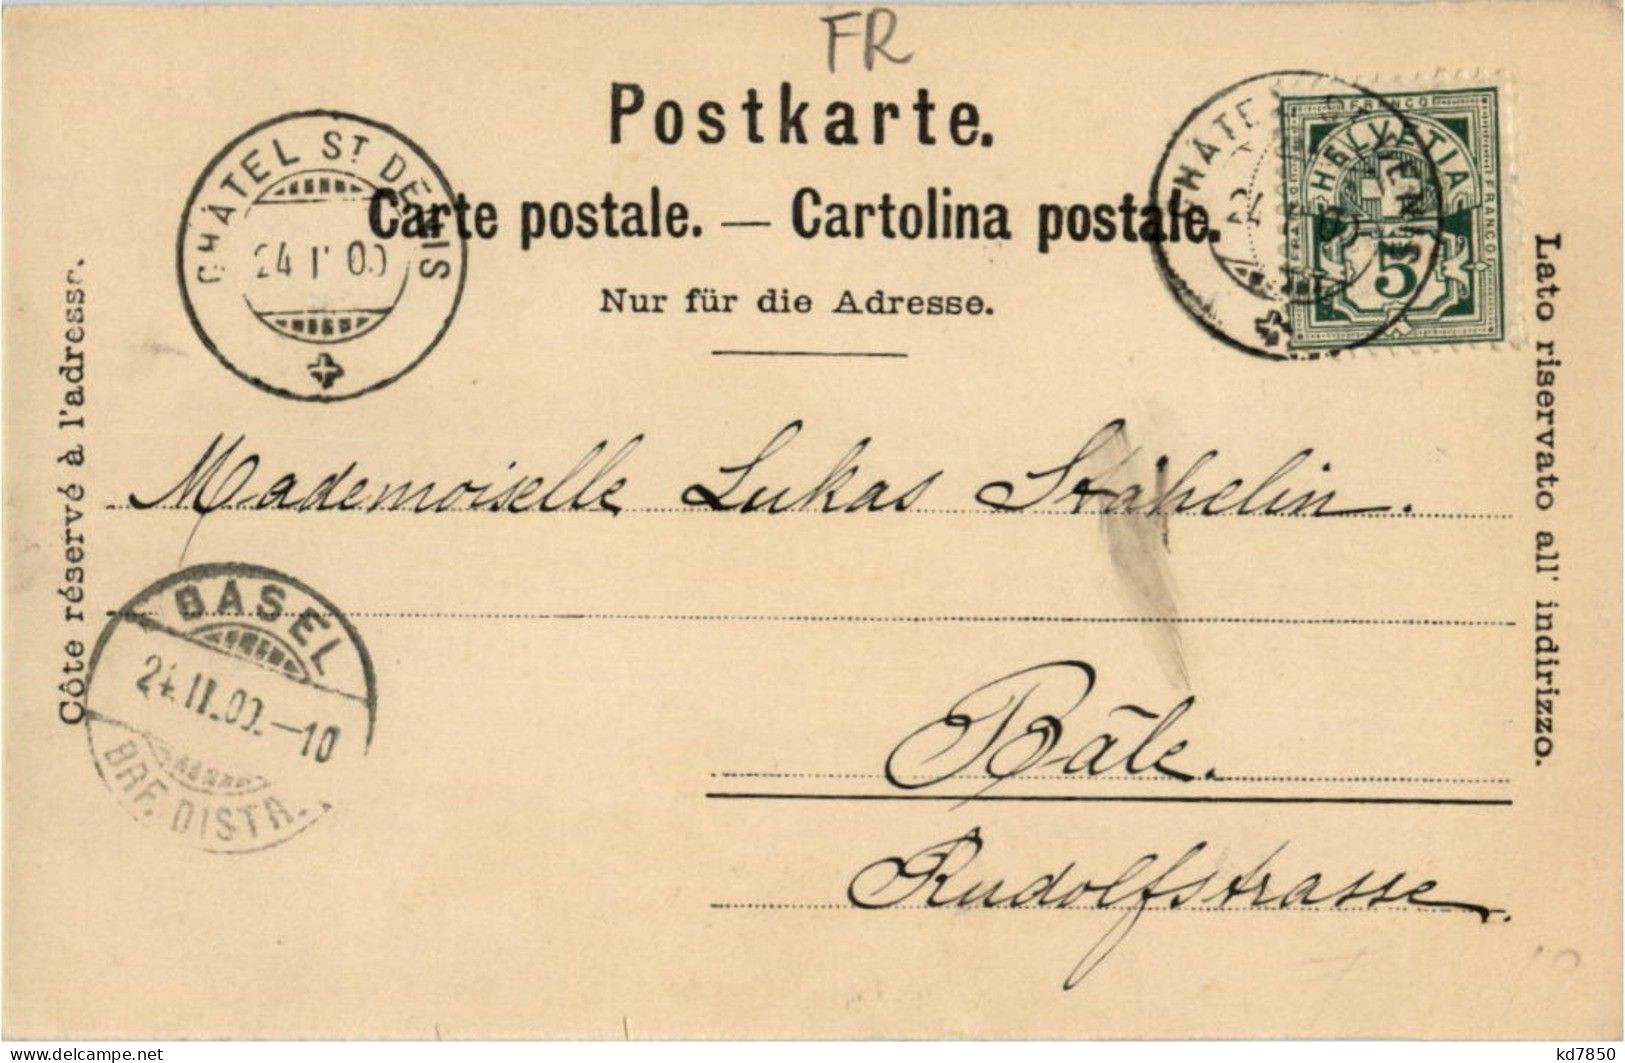 FR
Postkarte.
Carte postale. — Cartolina postale.
Nur für die Adresse.
CHÂTEL ST DENIS
24 II 00
FRANCO
HELVETIA
FRANCO
FRANCO
5
Côté réservé à l'adresse.
Lato riservato all' indirizzo.
Mademoiselle Lukas Stähelin.
BASEL
24.II.00.-10
BRF. DISTR.
Bâle.
Rudolfstrasse.
kd7850